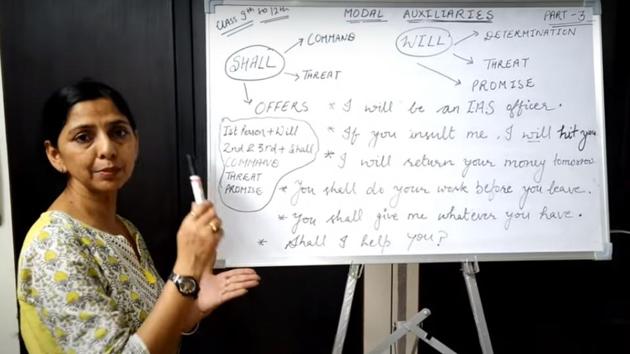 CLASS 9th to 12th
MODAL AUXILIARIES
PART-3
SHALL
COMMAND
THREAT
OFFERS
WILL
DETERMINATION
THREAT
PROMISE
Ist Person + Will
2nd & 3rd + Shall
COMMAND
THREAT
PROMISE
* I will be an IAS officer.
* If you insult me, I will hit you
* I will return your money tomorrow
* You shall do your work before you leave.
* You shall give me whatever you have.
* Shall I help you?